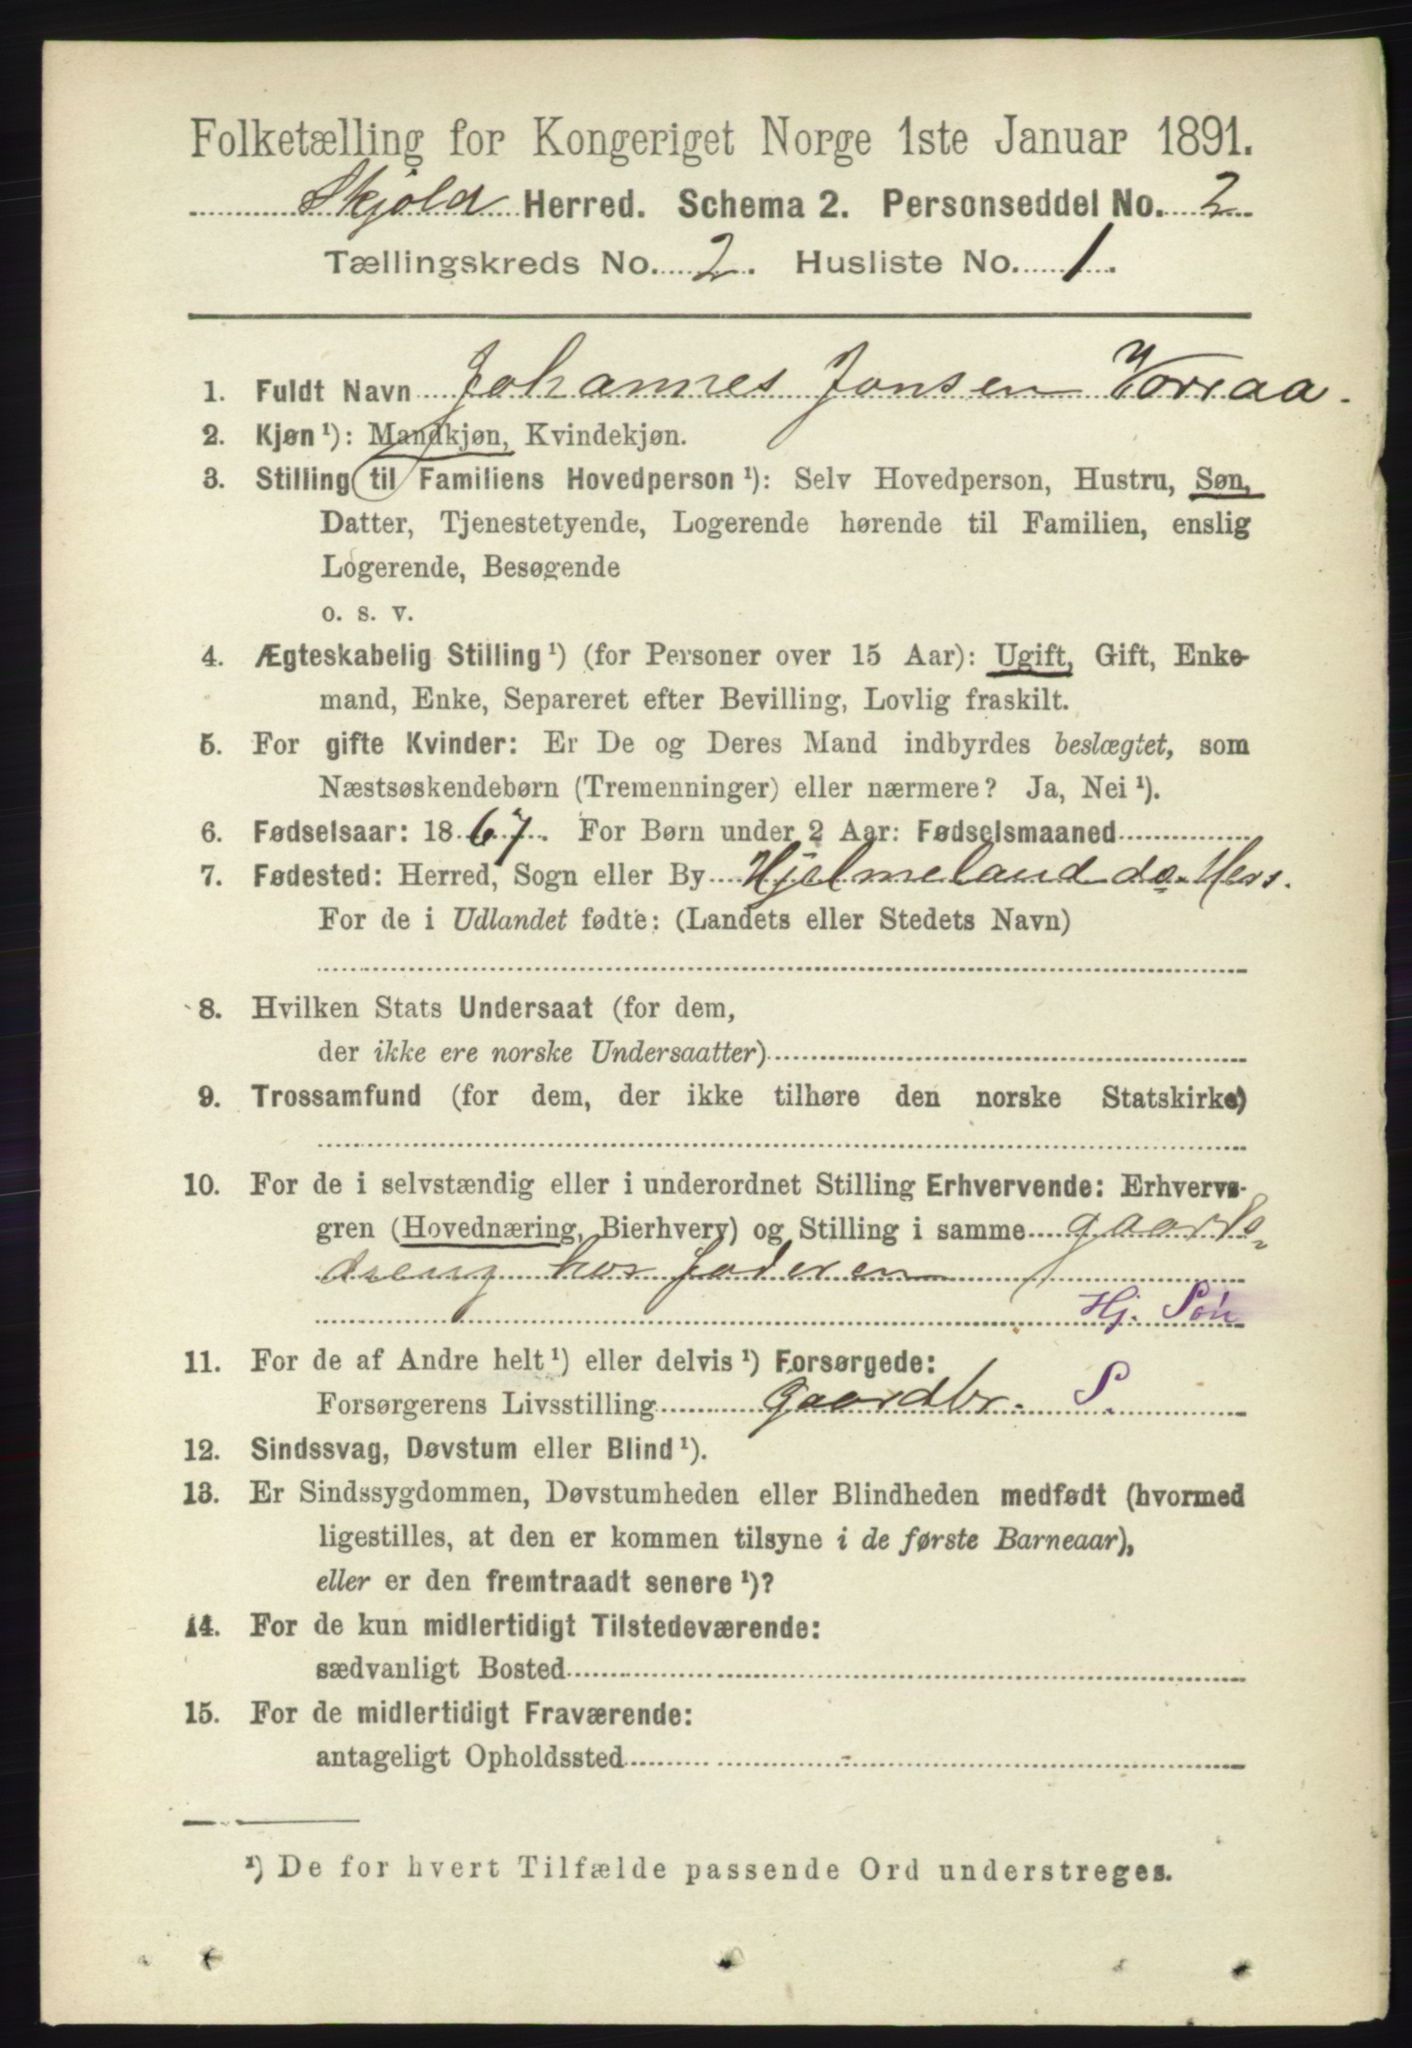 Folketælling for Kongeriget Norge 1ste Januar 1891.
Skjold Herred. Schema 2. Personseddel No. 2
Tællingskreds No. 2. Husliste No. 1.
1. Fuldt Navn Johannes Jonsen Vorraa.
2. Kjøn ¹): Mandkjøn, Kvindekjøn.
3. Stilling til Familiens Hovedperson ¹): Selv Hovedperson, Hustru, Søn,
Datter, Tjenestetyende, Logerende hørende til Familien, enslig
Logerende, Besøgende
o. s. v.
4. Ægteskabelig Stilling ¹) (for Personer over 15 Aar): Ugift, Gift, Enke-
mand, Enke, Separeret efter Bevilling, Lovlig fraskilt.
5. For gifte Kvinder: Er De og Deres Mand indbyrdes beslægtet, som
Næstsøskendebørn (Tremenninger) eller nærmere? Ja, Nei ¹).
6. Fødselsaar: 1867. For Børn under 2 Aar: Fødselsmaaned
7. Fødested: Herred, Sogn eller By Hjelmeland do. Hers.
For de i Udlandet fødte: (Landets eller Stedets Navn)
8. Hvilken Stats Undersaat (for dem,
der ikke ere norske Undersaatter)
9. Trossamfund (for dem, der ikke tilhøre den norske Statskirke)
10. For de i selvstændig eller i underordnet Stilling Erhvervende: Erhvervs-
gren (Hovednæring, Bierhverv) og Stilling i samme gaards-
dreng hos faderen
Hj. Søn
11. For de af Andre helt ¹) eller delvis ¹) Forsørgede:
Forsørgerens Livsstilling Gaardbr. S.
12. Sindssvag, Døvstum eller Blind ¹).
13. Er Sindssygdommen, Døvstumheden eller Blindheden medfødt (hvormed
ligestilles, at den er kommen tilsyne i de første Barneaar),
eller er den fremtraadt senere ¹)?
14. For de kun midlertidigt Tilstedeværende:
sædvanligt Bosted
15. For de midlertidigt Fraværende:
antageligt Opholdssted
¹) De for hvert Tilfælde passende Ord understreges.